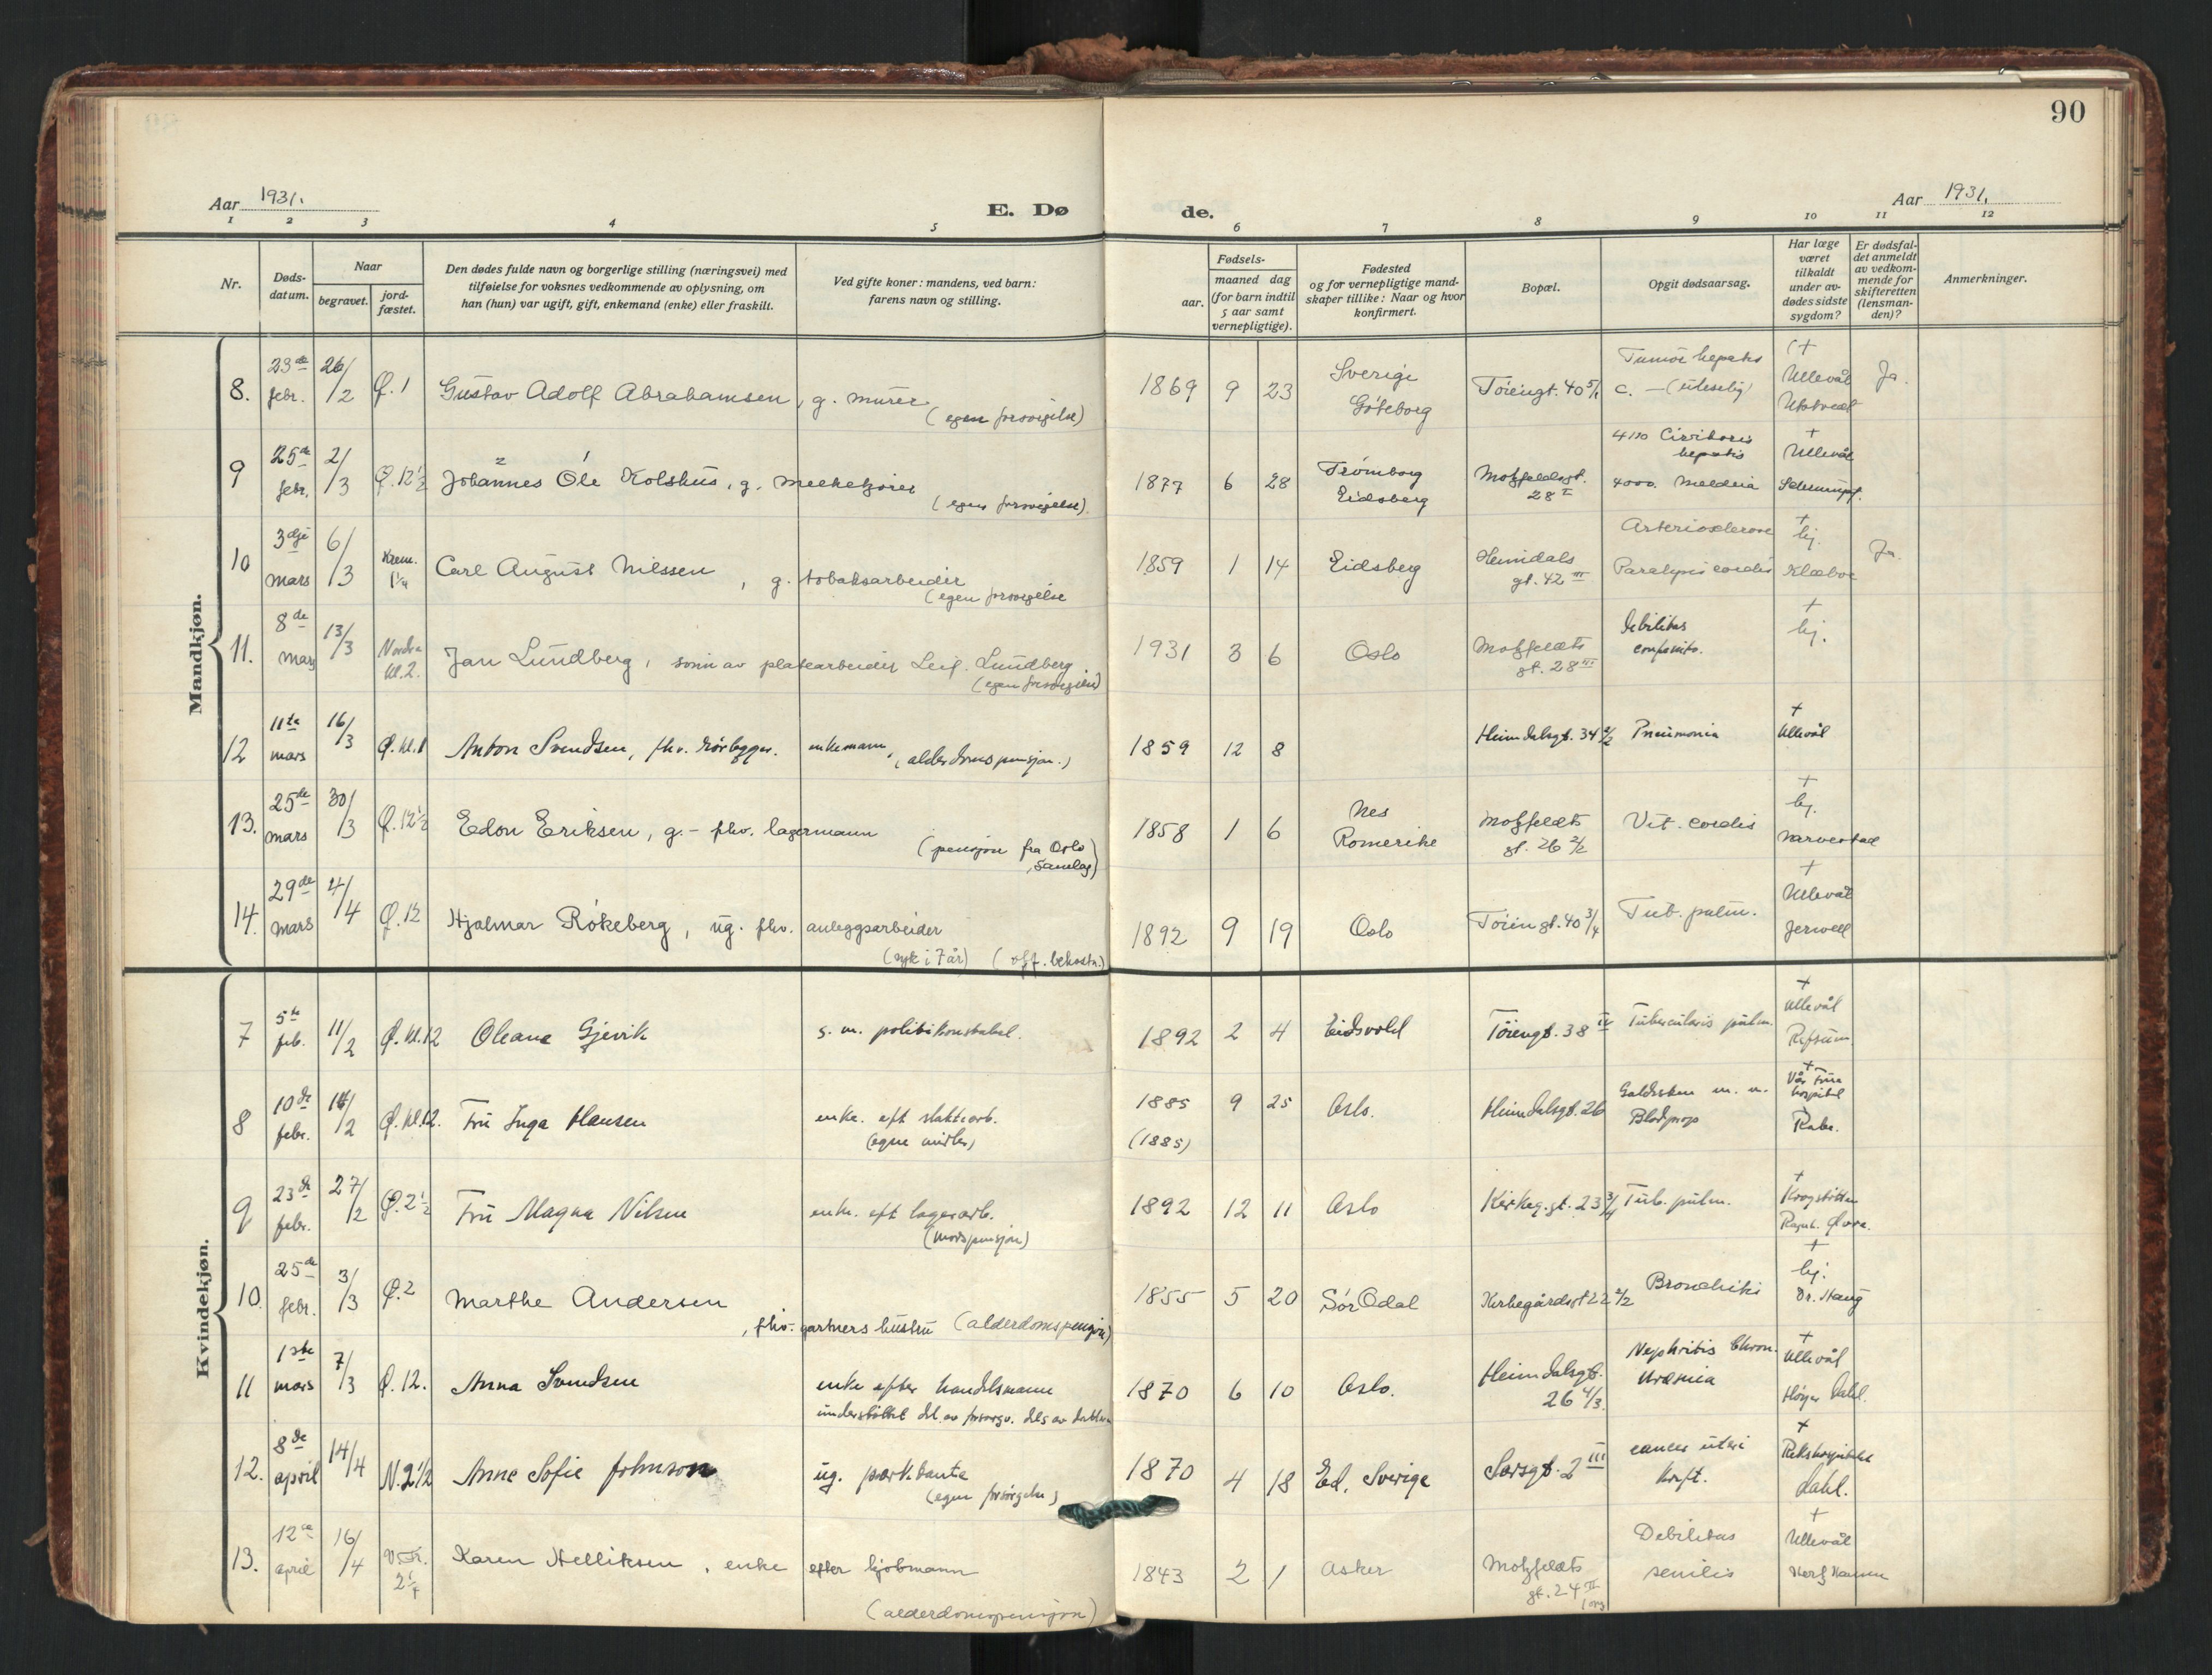 90
Aar 1931.
E. Dø de.
Aar 1931.
1 2 3 4 5 6 7 8 9 10 11 12
Nr.
Døds-
datum.
Naar
begravet.
jord-
fæstet.
Den dødes fulde navn og borgerlige stilling (næringsvei) med
tilføielse for voksnes vedkommende av oplysning, om
han (hun) var ugift, gift, enkemand (enke) eller fraskilt.
Ved gifte koner: mandens, ved barn:
farens navn og stilling.
Fødsels-
aar.
maaned dag
(for barn indtil
5 aar samt
vernepligtige).
Fødested
og for vernepligtige mand-
skaper tillike: Naar og hvor
konfirmert.
Bopæl.
Opgit dødsaarsag.
Har læge
været
tilkaldt
under av-
dødes sidste
sygdom?
Er dødsfal-
det anmeldt
av vedkom-
mende for
skifteretten
(lensman-
den)?
Anmerkninger.
Mandkjøn.
8. 23de febr. 26/2 Ø. 1 Gustav Adolf Abrahamsen, g. murer
(egen forsørgelse)
1869 9 23 Sverige Göteborg Töiengt. 40 5/1 Tumor hepatis c. — (uteselig) + Ullevål Ja.
9 25de febr. 2/3 Ø. 12 1/2 Johannes Ole Kolshus, g. melkekjører
(egen forsørgelse)
1877 6 28 Trömborg Eidsberg Motzfeldtsgt. 28 II Cirrhosis hepatis + Ullevål
10 3dje mars 6/3 Krem. 1 1/4 Carl August Nilssen, g. tobaksarbeider
(egen forsørgelse
1859 1 14 Eidsberg Heimdals gt. 42 III Arteriosclerose Paralysis cordis + hj. Klæboe Ja.
11. 8de mars 13/3 Nordre kl. 2. Jan Lundberg, sønn av platearbeider Leif Lundberg
(egen forsørgelse)
1931 3 6 Oslo Motzfeldts gt. 28 III Debilitas congenita. + hj.
12 11te mars 16/3 Ø. kl. 1 Anton Svendsen, fhv. rørlegger. enkemann, (alderdomspensjon.)
1859 12 8 Heimdalsgt. 34 2/2 Pneumonia + Ullevål
13. 25de mars 30/3 Ø. 12 1/2 Edon Eriksen, g. - fhv. lagermann
(pensjon fra Oslo Samlag)
1858 1 6 Nes Romerike Motzfeldts gt. 26 2/2 Vit. cordis + hj. Narvestad
14. 29de mars 4/4 Ø. 12 Hjalmar Rökeberg, ug. fhv. anleggsarbeider
(syk i 7 år) (off. bekostn.)
1892 9 19 Oslo Töiengt. 40 3/4 Tub. pulm. + Ullevål Jervell
Kvindekjøn.
7 5te feb. 11/2 Ø. kl. 12 Oleane Gjevik s. m. politikonstabel.
1892 2 4 Eidsvold Töiengt. 38 IV Tuberculosis pulm. + Ullevål Refsum.
8 10de febr. 14/2 Ø. kl. 12. Fru Inga Hansen enke. eft slaktearb.
(egne midler)
1885 (1885) 9 25 Oslo. Heimdalsgt. 26 Galdesten m. m. Blodprop + Vår Frue hospital
9 23de febr. 27/2 Ø. 2 1/2 Fru Magna Nilsen enke. eft lagerarb.
(morspensjon)
1892 12 11 Oslo Kirkeg.gt. 23 3/4 Tub. pulm. + Krogstötten
10. 25de febr. 3/3 Ø. 2 Marthe Andersen, fhv. gartners hustru (alderdomspensjon)
1855 5 20 Sör Odal Kirkegårdsgt 22 2/2 Bronchitis + hj. Dr. Haug
11 1ste mars 7/3 Ø. 12. Anna Svendsen enke efter handelsmann
understöttet del. av forsorgsv. dels av
1870 6 10 Oslo. Heimdalsgt. 26 4/3. Nephritis Chron. Uræmia + Ullevål Höyer Dahl.
12. 8de april 14/4 N. 2 1/2 Anne Sofie Johnson ug. parktante
(egen forsörgelse)
1870 4 18 Ed, Sverige Sarsgt. 2 III cancer uteri kreft. + Rikshospitalet Dahl.
13. 12te april 16/4 V. Fr. 2 1/4 Karen Helliksen, enke efter kjöbmann
(alderdomspensjon)
1843 2 1 Asker Motzfeldts gt. 24 III Debilitas senilis + Ullevål